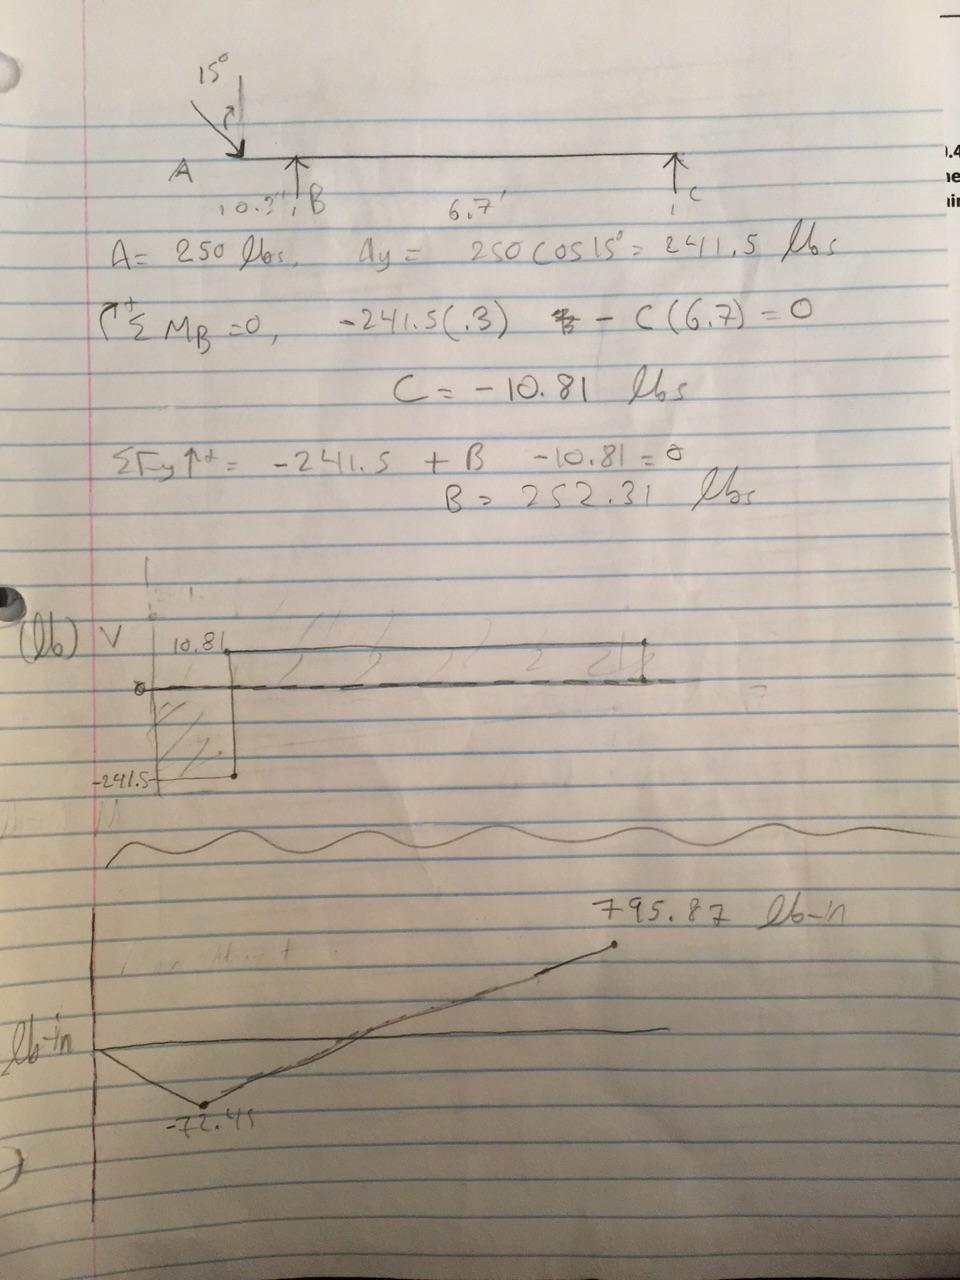 15°
A
0.3" B
6.7'
C
A= 250 lbs, Ay = 250 cos15° = 241.5 lbs
+ΣM_B =0, -241.5(.3) - C(6.7) = 0
C = -10.81 lbs
ΣFy↑+ = -241.5 + B -10.81 = 0
B = 252.31 lbs
(lb) V
10.81
0
-241.5
M
795.87 lb-in
lb-in
-72.45